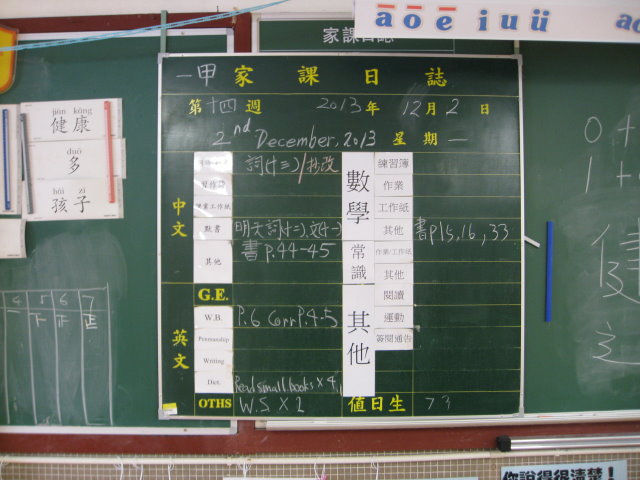 āōēiuü
家課日誌
一甲 家課日誌
第十四週 2013年 12月 2日
2nd December, 2013 星期一
jiàn kāng
健康
duō
多
hái zi
孩子
中文
詞(十三)/抄改
默書 明天詞(十二),文(十一)
其他 書 p.44-45
數學
練習簿
作業
工作紙
其他 書p15,16,33
常識
作業/工作紙
其他
G.E.
英文
W.B. P.6 Corr P.4-5
Penmanship
Writing
Dict.
Read small books x 4,
OTHS W.S X 2
其他
閱讀
運動
簽閱通告
值日生 23
4 5 6 7
0+
1+
健
你說得很清楚！